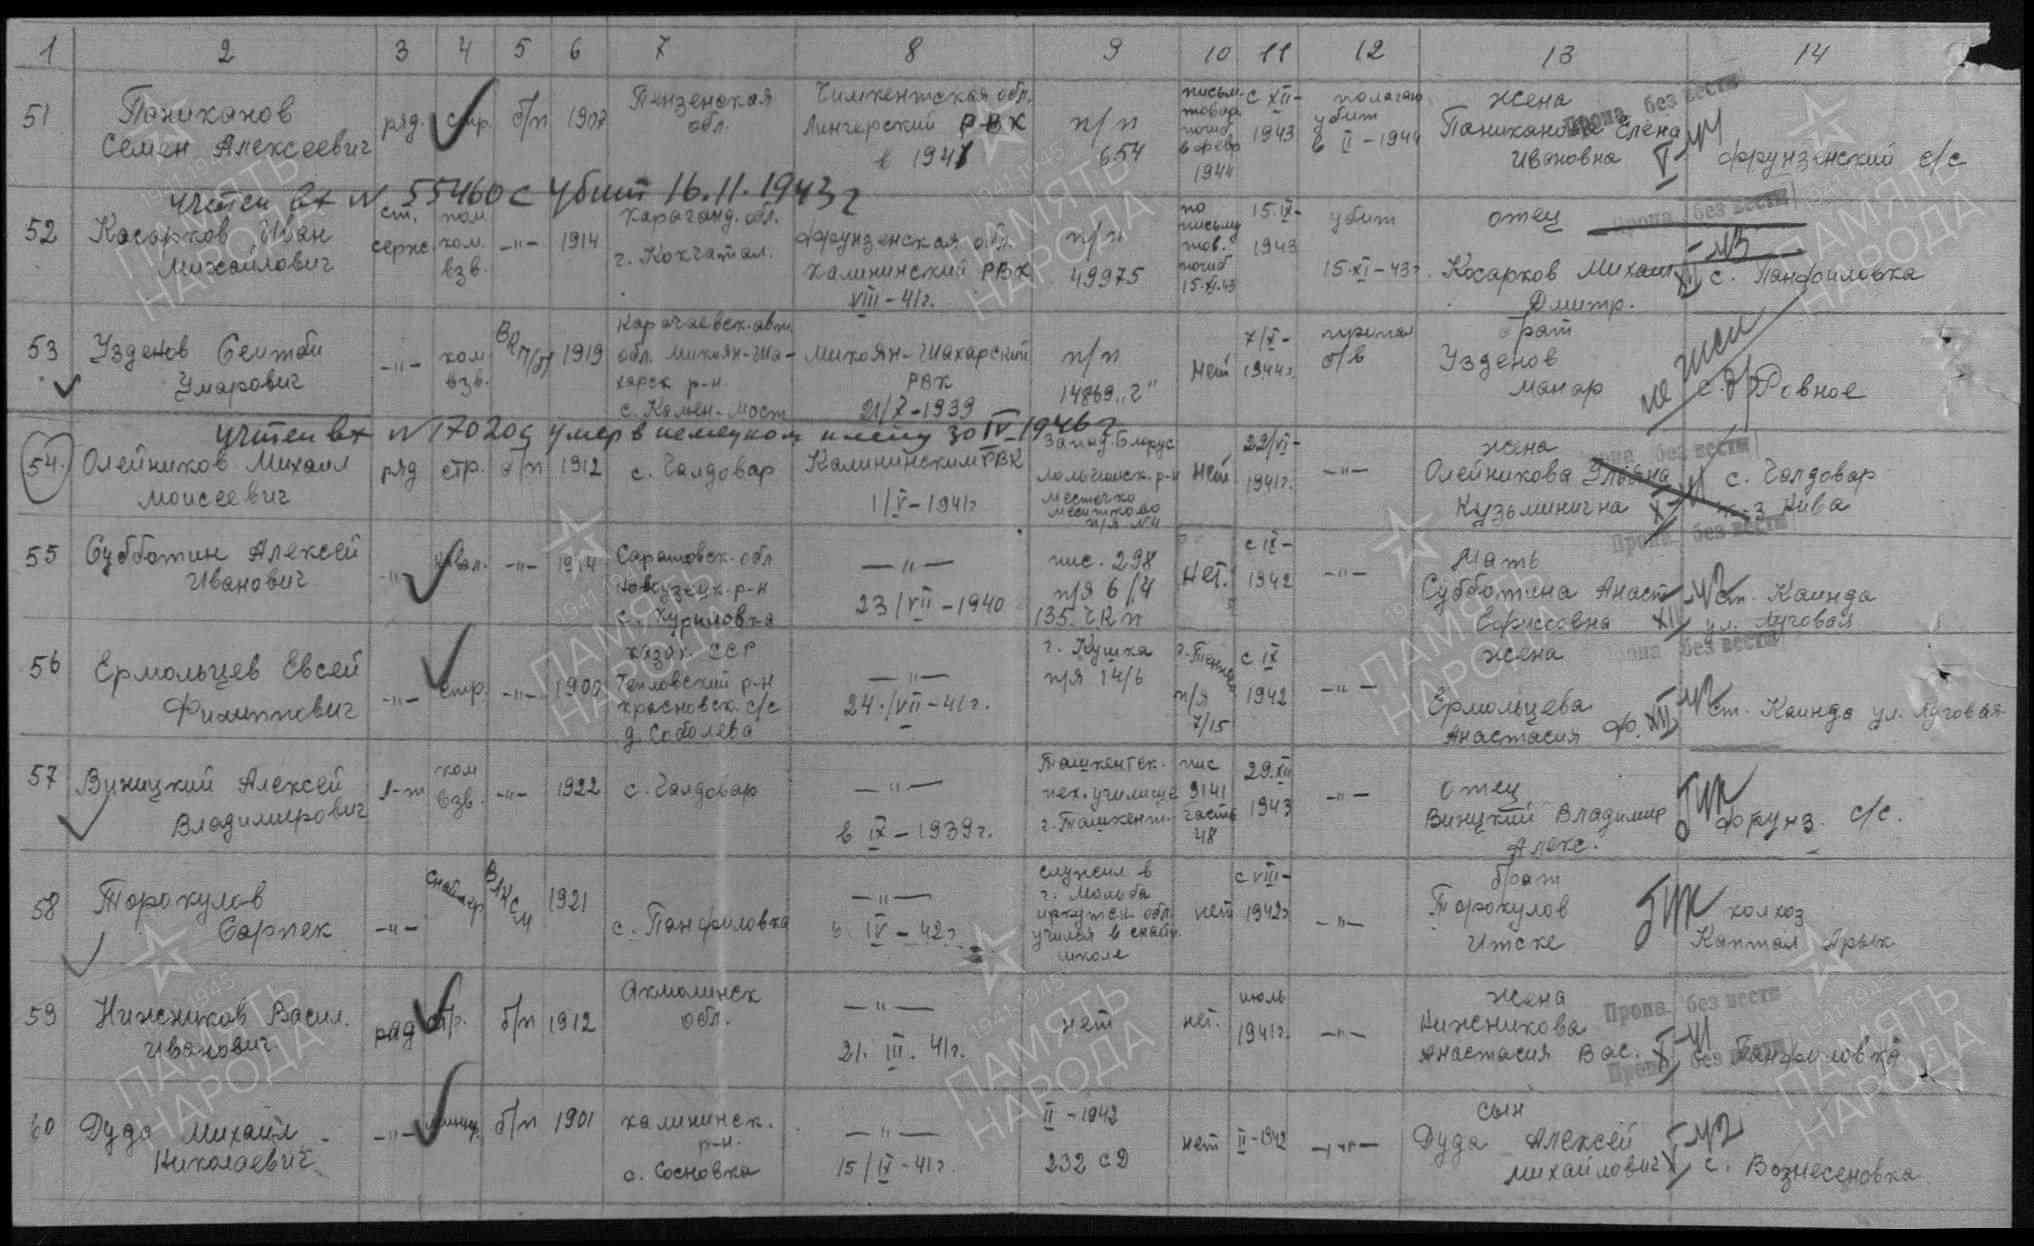 1 2 3 4 5 6 7 8 9 10 11 12 13 14
51 Паниханов Семен Алексеевич
ряд. стр. б/п 1907
Пензенская обл.
Чимкентская обл.
Лингерский РВК
в 1941
п/п 654
письм. товар. погиб в февр 1944
с XII-1943
полагаю убит в II-1944
жена
Паниханова Елена Ивановна
Пропа. без вести
Фрунзенский с/с
учтен вх N 55460с убит 16.11.1943г
52 Косарков Иван Михайлович
ст. сержс пом. ком. взв. -"- 1914
Караганд. обл.
г. Кокчатал.
Фрунзенская обл.
Калининский РВК
VIII-41г.
п/п 49975
по письму тов. погиб 15.XI.43
15.IX-1943
убит 15.XI-43г.
отец
Косарков Михаил Дмитр.
Пропа. без вести
с. Панфиловка
53 Узденов Сеитби Умарович
-"- ком взв. 1919
Карачаевск. авт. обл. Микоян-Шахарск р-н.
с. Камен-Мост
Микоян-Шахарский РВК
21/X-1939
п/п 14869 "г"
нет
7/X-1944г.
пропал б/в
брат
Узденов Манар
с. Ровное
учтен вх N 17020с умер в немецком плену 30 IV 1946г
54. Олейников Михаил Моисеевич
ряд стр. б/п 1912
с. Чалдовар
Калининским РВК
1/V-1941г
Запад. Белорус
местечко
п/я N4
нет
22/VI-1941г.
-"-
жена
Олейникова Ульяна Кузьминична
без вести
с. Чалдовар
к-з Нива
55 Субботин Алексей Иванович
-"- кавал. -"- 1914
Саратовск. обл
Новоузенск. р-н
с. Куриловка
-"-
23/VII-1940
пис. 298
п/я 6/4
нет.
с IX-1942
-"-
мать
Субботина Анаст Бориссовна
Пропа. без вести
ст. Каинда
ул. Луговая
56 Ермольцев Евсей Филиппович
-"- стр. -"-
Казах. ССР
Тепловский р-н
Красновск. с/с
д. Соболева
-"-
24./VII-41г.
г. Кушка
п/я 14/6
п/я 7/15
с IX 1942
-"-
жена
Ермольцева Анастасия Ф.
без вести
ст. Каинда ул. Луговая
57 Виницкий Алексей Владимирович
л-т ком взв. -"- 1922
с. Чалдовар
-"-
в IX-1939г.
Ташкентск. пех. училище
г. Ташкент.
пис 9141 часть 48
29.XII 1943
-"-
отец
Виницкий Владимир Алекс.
Фрунз. с/с.
58 Торокулов Сарпек
-"- снайпер ВЛКСМ 1921
с. Панфиловка
-"-
в IV-42г.
служил в г. Мальба
иркутск. обл
учился в снайп. школе
нет
с VIII-1942г
-"-
брат
Торокулов Итске
колхоз
Каптал Арык
59 Нижников Васил. Иванович
ряд стр. б/п 1912
Акмолинск обл.
-"-
21. III. 41г.
нет
нет.
июль 1941г.
-"-
жена
Нижникова Анастасия Вас.
Пропа. без вести
Панфиловка
60 Дуда Михаил Николаевич
-"- б/п 1901
Калининск. р-н.
с. Сосновка
-"-
15/IX-41г.
II-1942
232 сд
нет
II-1942
-"-
сын
Дуда Алексей Михайлович
Пропа. без вести
с. Вознесеновка
ПАМЯТЬ НАРОДА
1941-1945